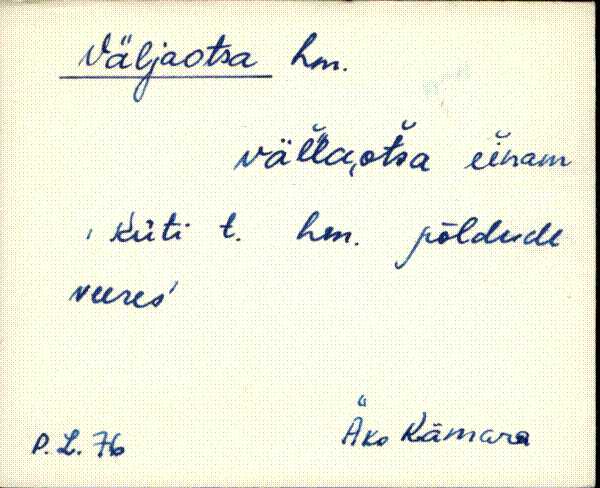 Väljaotsa hm.
väl̆l̆a,ot̆sa ein̆am
'Küti t. hm. põldude
veeres'
P.L. 76 Äks Kämara